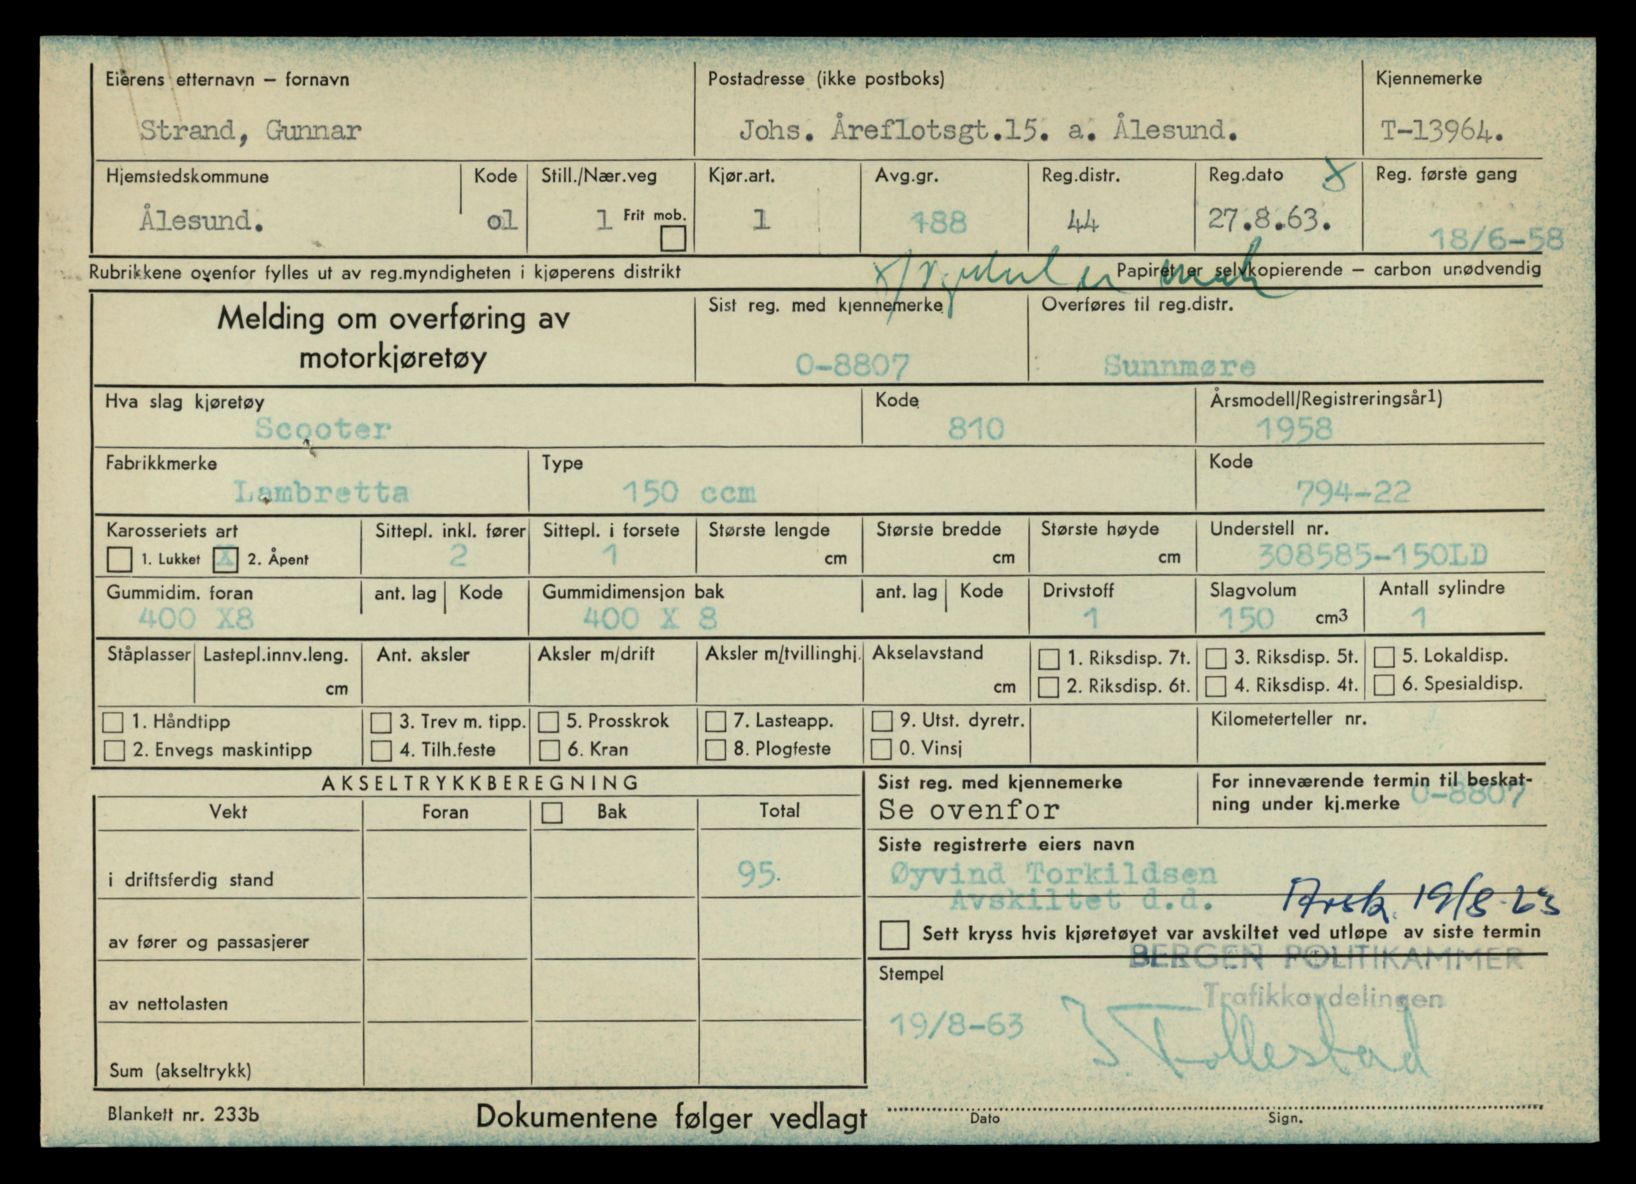 Eierens etternavn – fornavn Postadresse (ikke postboks) Kjennemerke
Strand, Gunnar Johs. Åreflotsgt.15. a. Ålesund. T-13964.
Hjemstedskommune Kode Still./Nær.veg Kjør.art. Avg.gr. Reg.distr. Reg.dato x Reg. første gang
Ålesund. ol 1 Frit mob. 1 188 44 27.8.63. 18/6-58
Rubrikkene ovenfor fylles ut av reg.myndigheten i kjøperens distrikt Papiret er selvkopierende – carbon unødvendig
Melding om overføring av Sist reg. med kjennemerke Overføres til reg.distr.
motorkjøretøy O-8807 Sunnmøre
Hva slag kjøretøy Kode Årsmodell/Registreringsår1)
Scooter 810 1958
Fabrikkmerke Type Kode
Lambretta 150 ccm 794-22
Karosseriets art Sittepl. inkl. fører Sittepl. i forsete Største lengde Største bredde Største høyde Understell nr.
1. Lukket X 2. Åpent 2 1 cm cm cm 308585-150LD
Gummidim. foran ant. lag Kode Gummidimensjon bak ant. lag Kode Drivstoff Slagvolum Antall sylindre
400 X8 400 X 8 1 150 cm3 1
Ståplasser Lastepl.innv.leng. Ant. aksler Aksler m/drift Aksler m/tvillinghj. Akselavstand 1. Riksdisp. 7t. 3. Riksdisp. 5t. 5. Lokaldisp.
cm cm 2. Riksdisp. 6t. 4. Riksdisp. 4t. 6. Spesialdisp.
1. Håndtipp 3. Trev m. tipp. 5. Prosskrok 7. Lasteapp. 9. Utst. dyretr. Kilometerteller nr.
2. Envegs maskintipp 4. Tilh.feste 6. Kran 8. Plogfeste 0. Vinsj
AKSELTRYKKBEREGNING Sist reg. med kjennemerke For inneværende termin til beskat-
Se ovenfor ning under kj.merke O-8807
Vekt Foran Bak Total
Siste registrerte eiers navn
i driftsferdig stand 95. Øyvind Torkildsen
Avskiltet d.d. 19/8-63
av fører og passasjerer Sett kryss hvis kjøretøyet var avskiltet ved utløpe av siste termin
BERGEN POLITIKAMMER
Stempel
Trafikkavdelingen
av nettolasten 19/8-63 Follestad
Sum (akseltrykk)
Blankett nr. 233b Dokumentene følger vedlagt Dato Sign.